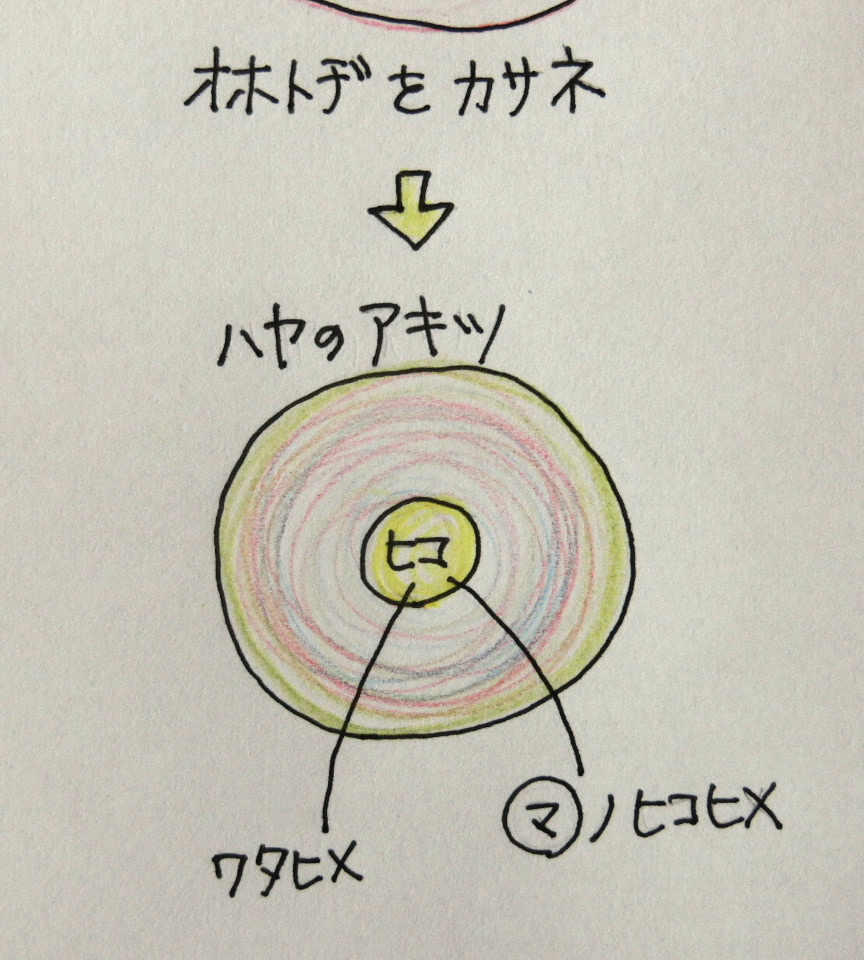 オホトヂをカサネ
ハヤのアキツ
ヒコ
マノヒコヒメ
ワタヒメ